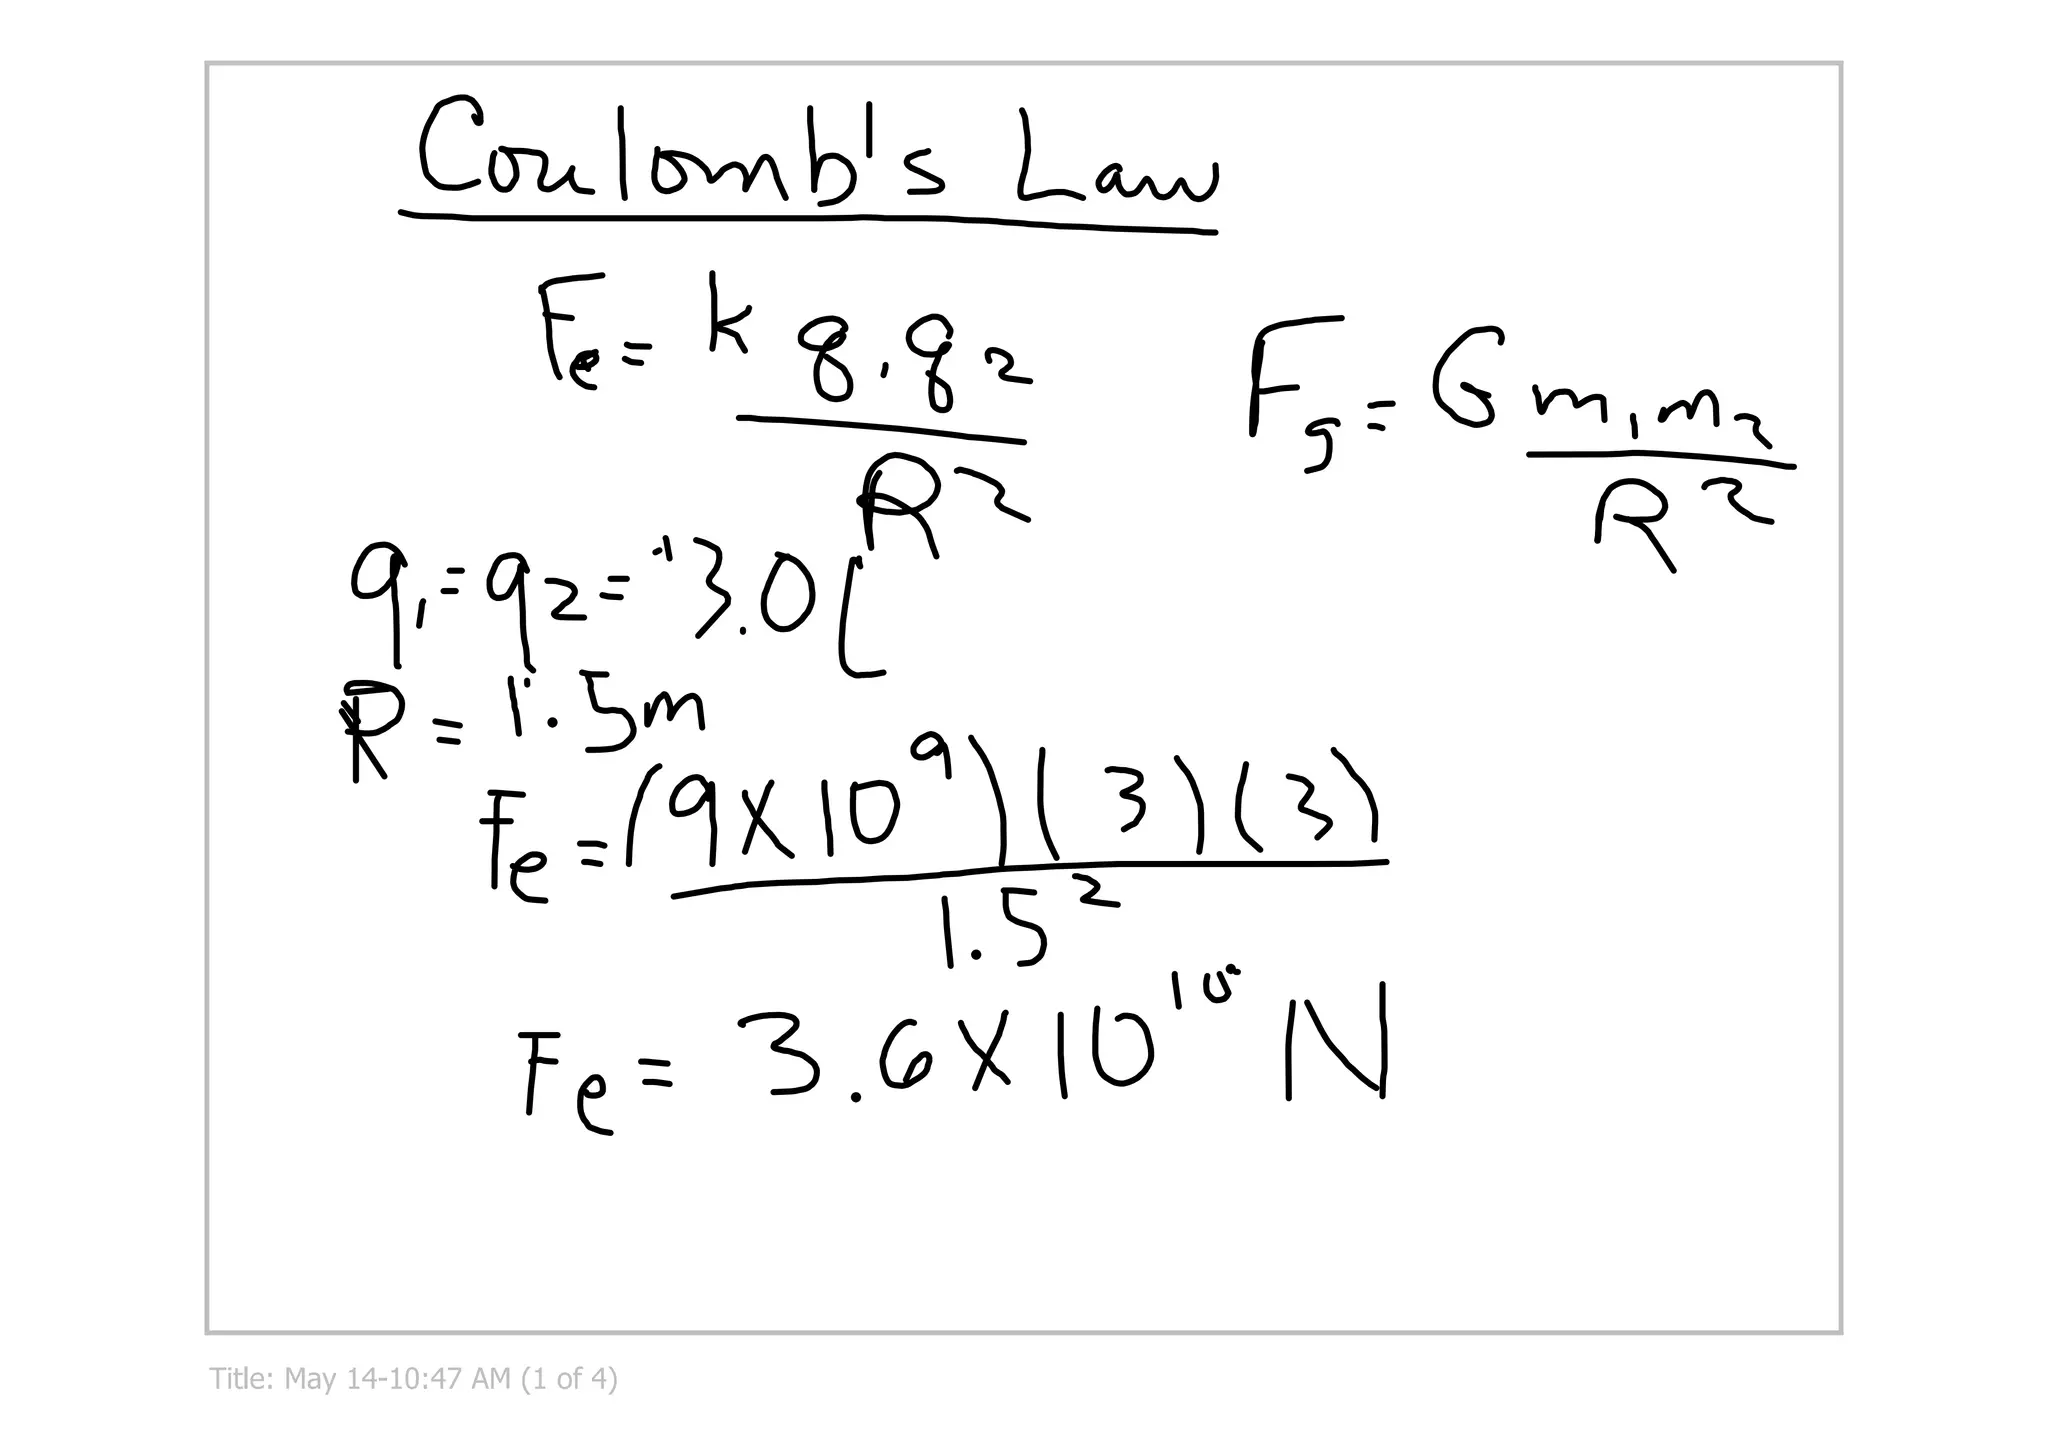 Coulomb's Law
Fe = k q1q2 / R²
Fg = G m1m2 / R²
q1 = q2 = +3.0 C
R = 1.5m
Fe = (9X10⁹)(3)(3) / 1.5²
Fe = 3.6X10¹⁰ N
Title: May 14-10:47 AM (1 of 4)